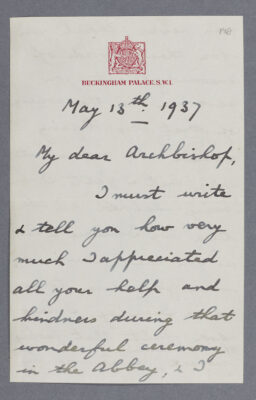 198
BUCKINGHAM PALACE. S.W.1.
May 13th. 1937
My dear Archbishop,
I must write
& tell you how very
much I appreciated
all your help and
kindness during that
wonderful ceremony
in the Abbey, & I